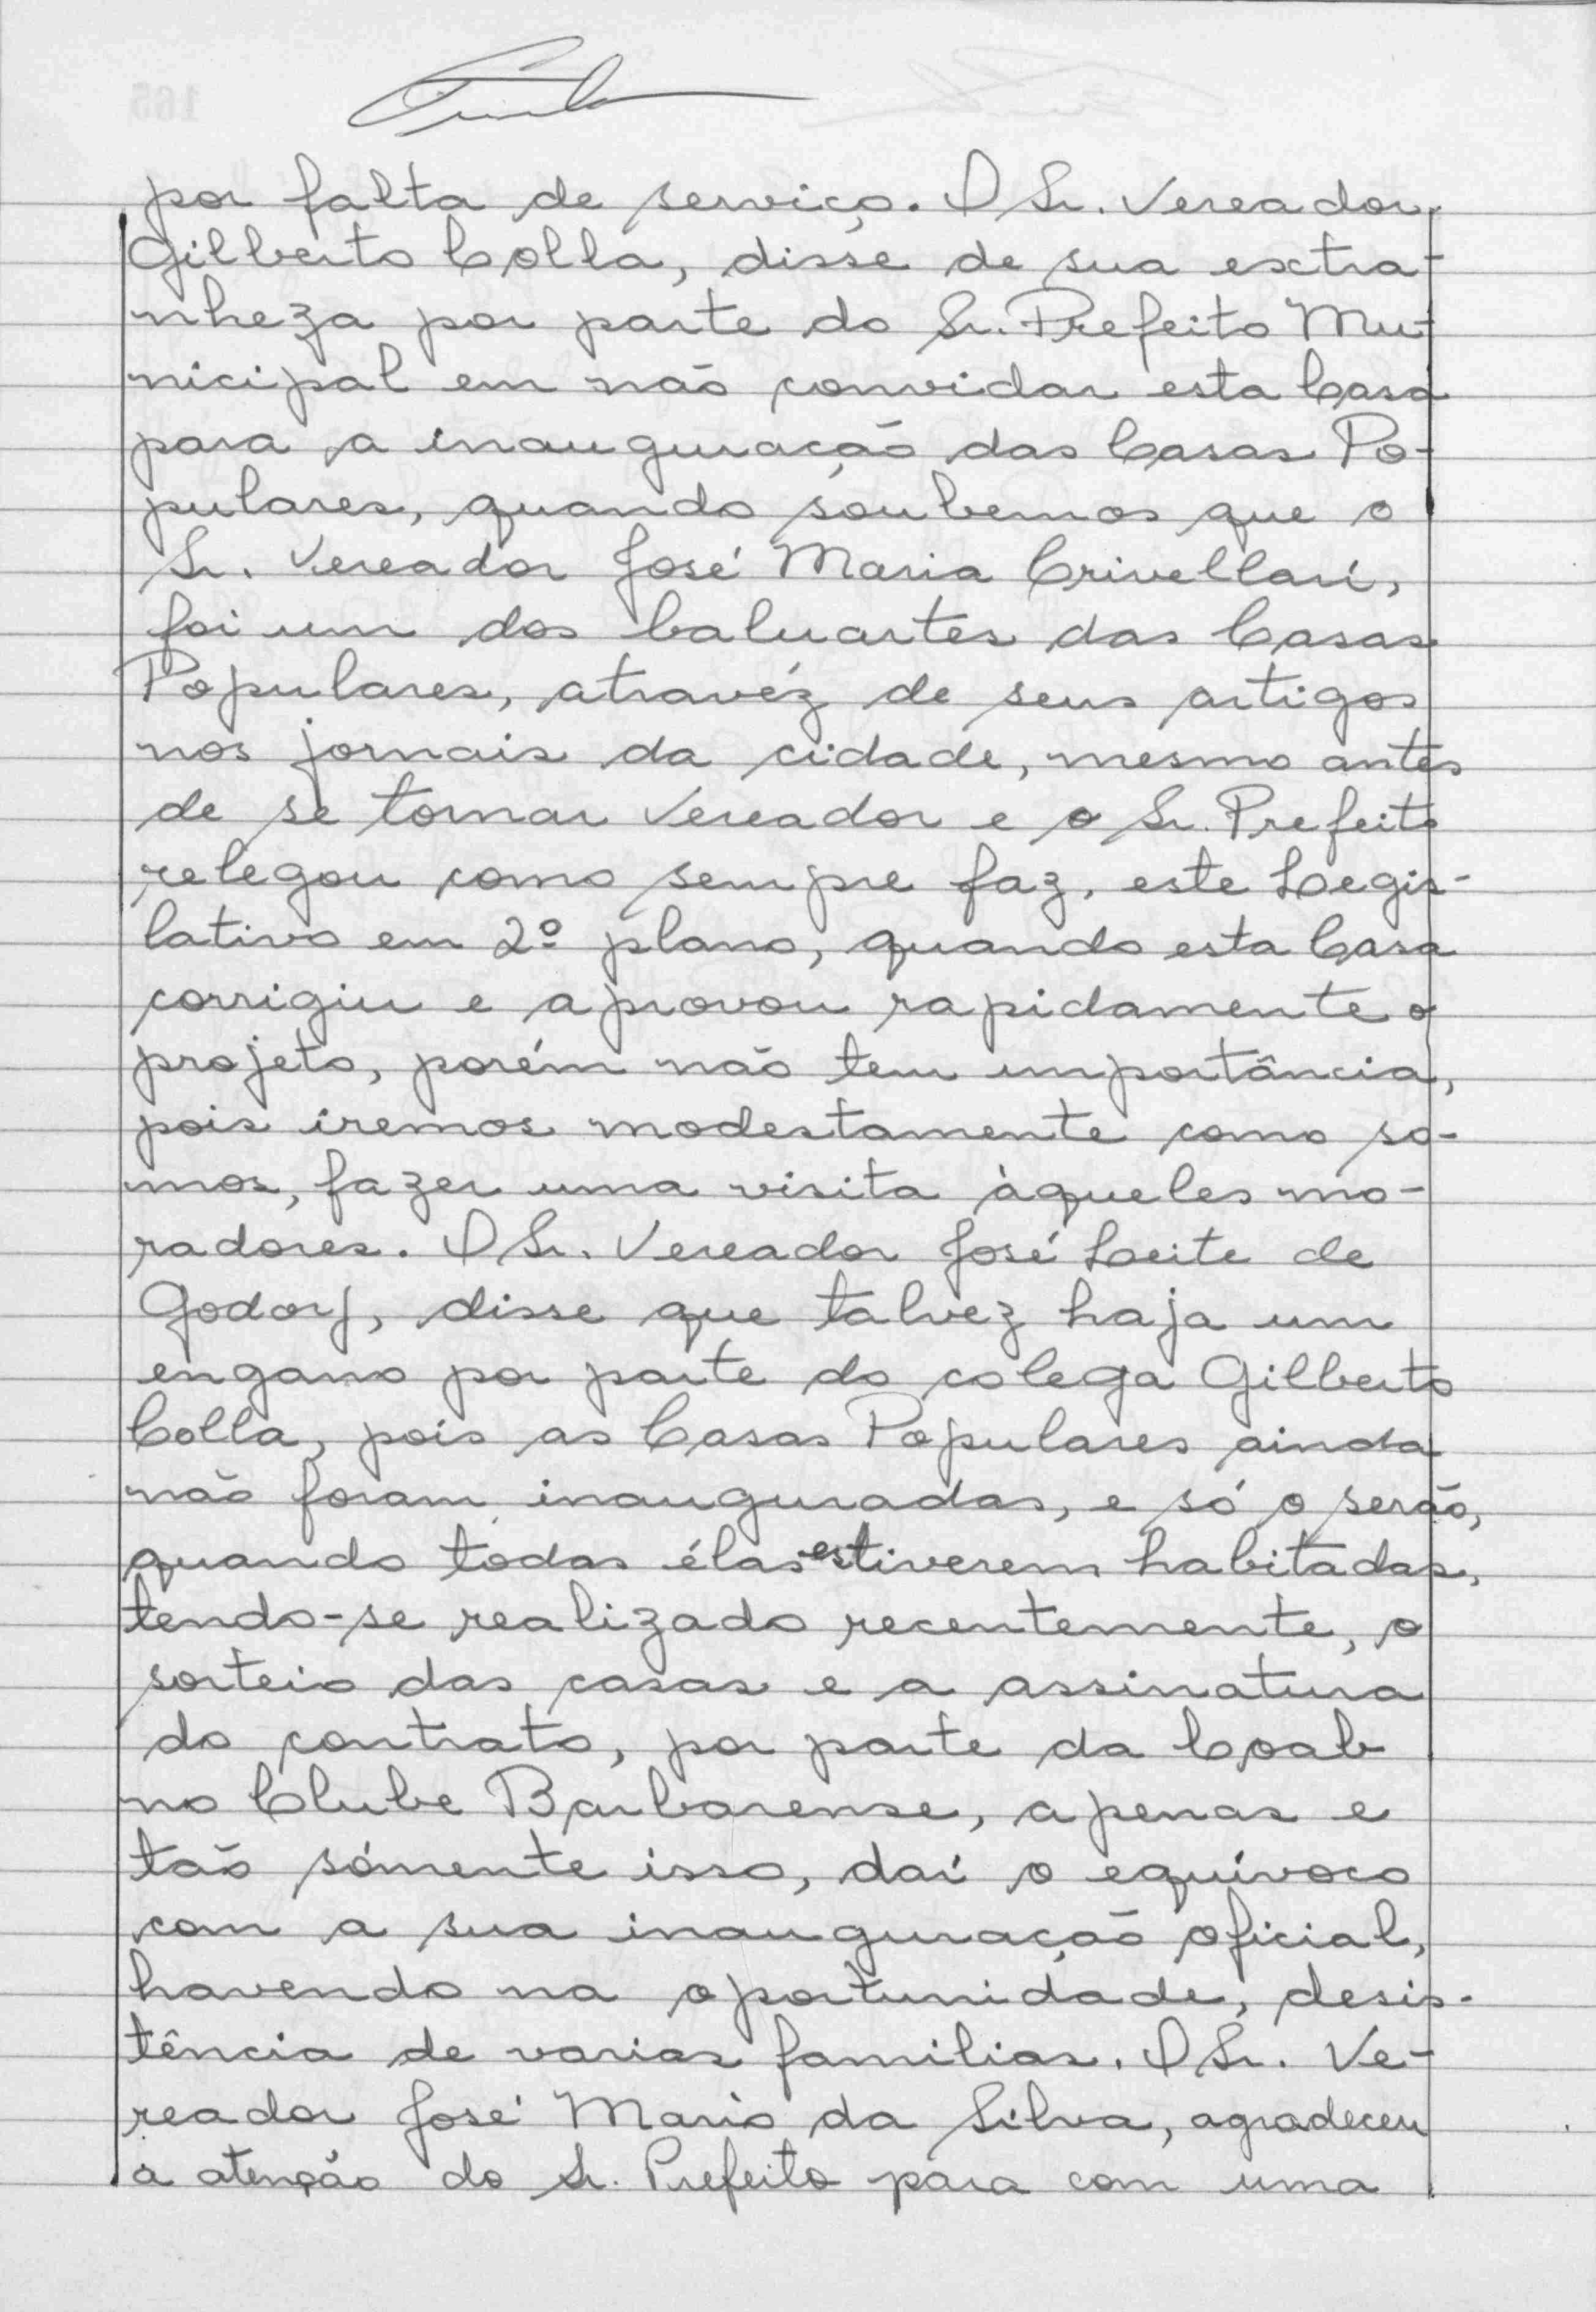 por falta de serviço. O Sr. Vereador
Gilberto Colla, disse de sua extra-
nheza por parte do Sr. Prefeito Mu-
nicipal em não convidar esta Casa
para a inauguração das Casas Po-
pulares, quando soubemos que o
Sr. Vereador José Maria Crivellari,
foi um dos baluartes das Casas
Populares, atravéz de seus artigos
nos jornais da cidade, mesmo antes
de se tornar Vereador e o Sr. Prefeito
relegou como sempre faz, este Legis-
lativo em 2º plano, quando esta Casa
corrigiu e aprovou rapidamente o
projeto, porém não tem importância,
pois iremos modestamente como so-
mos, fazer uma visita àqueles mo-
radores. O Sr. Vereador José Leite de
Godoy, disse que talvez haja um
engano por parte do colega Gilberto
Colla, pois as Casas Populares ainda
não foram inauguradas, e só o serão,
quando todas élas estiverem habitadas,
tendo-se realizado recentemente, o
sorteio das casas e a assinatura
do contrato, por parte da Coab
no Clube Barbarense, apenas e
tão sómente isso, daí o equívoco
com a sua inauguração oficial,
havendo na oportunidade, desis-
tência de varias familias. O Sr. Ve-
reador José Mario da Silva, agradeceu
a atenção do Sr. Prefeito para com uma